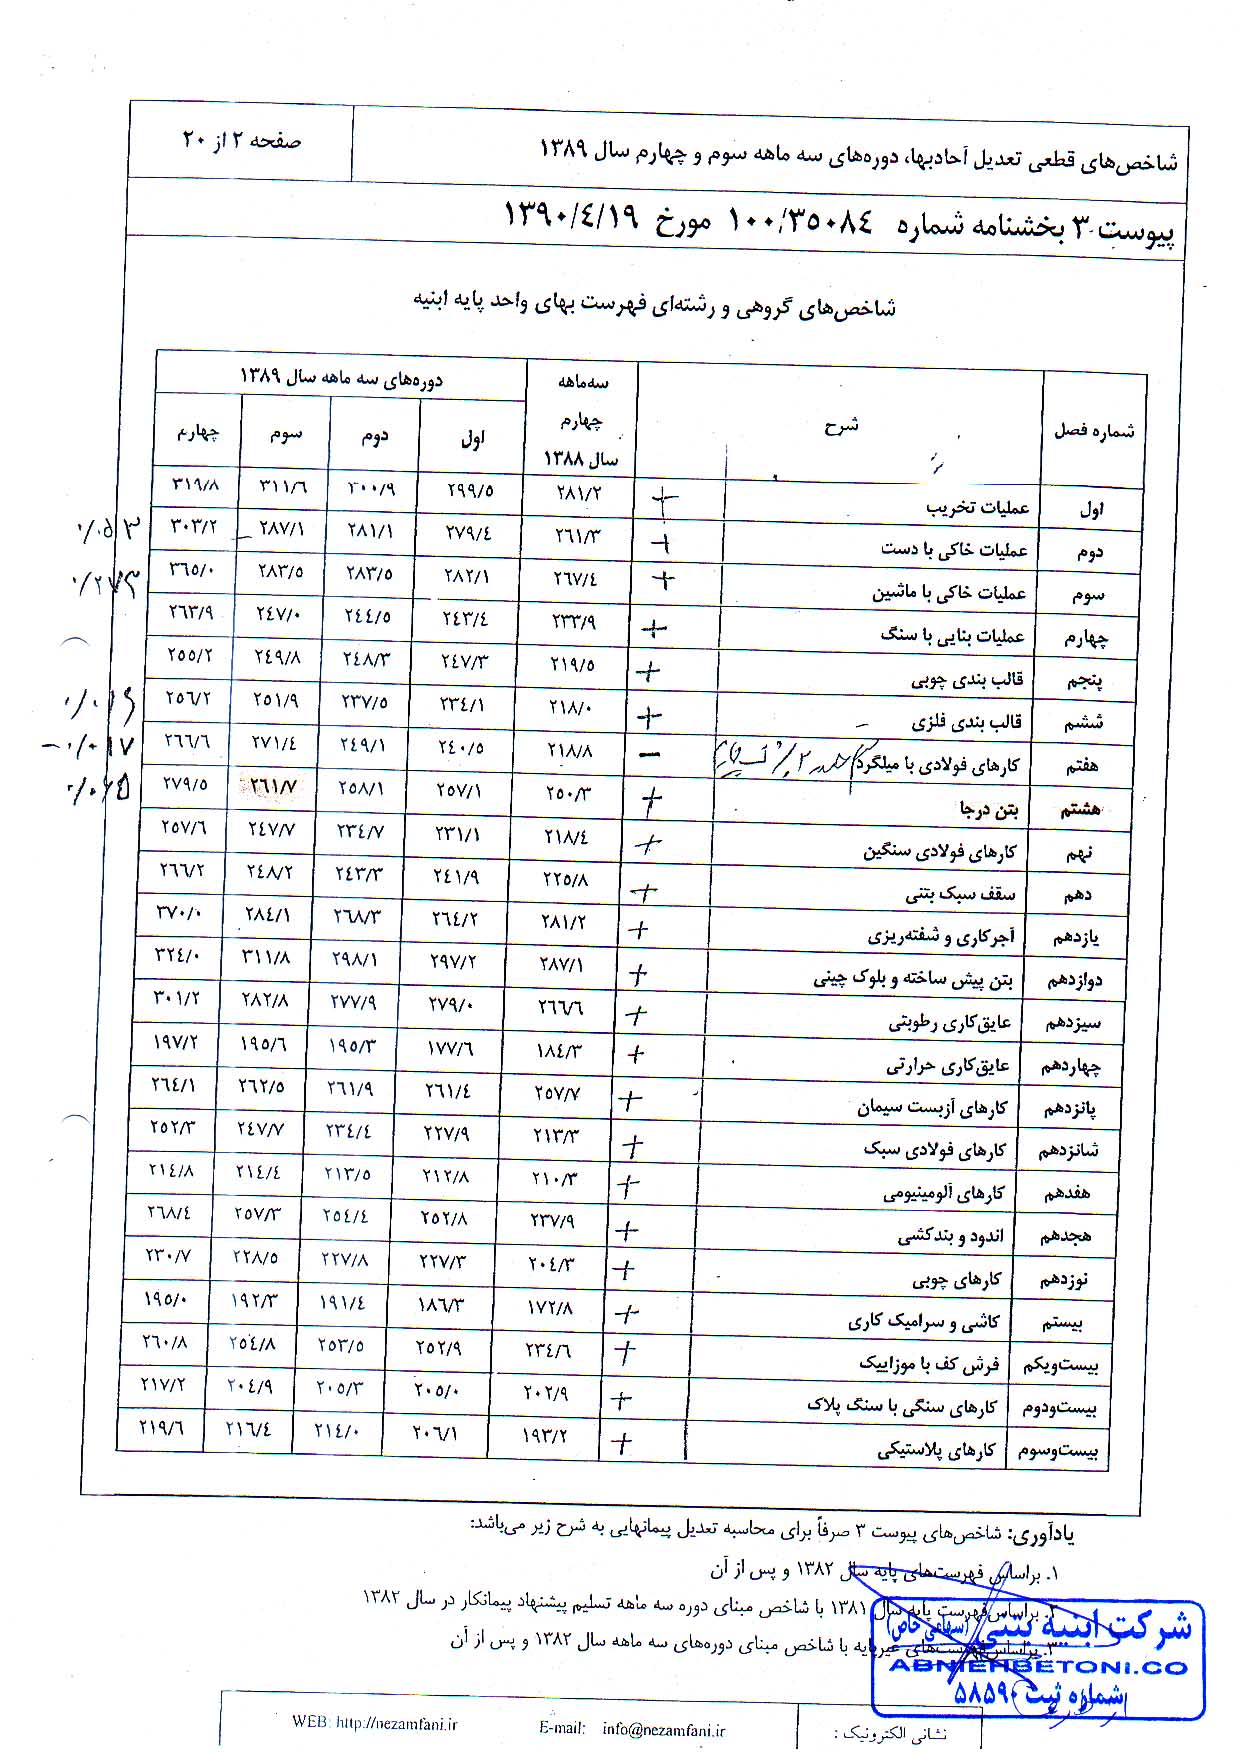 شاخص‌های قطعی تعدیل آحادبها، دوره‌های سه ماهه سوم و چهارم سال ۱۳۸۹
صفحه ۲ از ۲۰
پیوست ۳ بخشنامه شماره ۱۰۰/۳۵۰۸٤ مورخ ۱۳۹۰/٤/۱۹
شاخص‌های گروهی و رشته‌ای فهرست بهای واحد پایه ابنیه
شماره فصل شرح سه‌ماهه چهارم سال ۱۳۸۸ دوره‌های سه ماهه سال ۱۳۸۹
اول دوم سوم چهارم
اول عملیات تخریب + ۲۸۱/۲ ۲۹۹/۵ ۳۰۰/۹ ۳۱۱/٦ ۳۱۹/۸
دوم عملیات خاکی با دست + ۲٦۱/۳ ۲۷۹/٤ ۲۸۱/۱ ۲۸۷/۱ ۳۰۳/۲ ۰/۰۵۳
سوم عملیات خاکی با ماشین + ۲٦۷/٤ ۲۸۲/۱ ۲۸۳/۵ ۲۸۳/۵ ۳٦۵/۰
چهارم عملیات بنایی با سنگ + ۲۳۳/۹ ۲٤۳/٤ ۲٤٤/۵ ۲٤۷/۰ ۲٦۳/۹
پنجم قالب بندی چوبی + ۲۱۹/۵ ۲٤۷/۳ ۲٤۸/۳ ۲٤۹/۸ ۲۵۵/۲
ششم قالب بندی فلزی + ۲۱۸/۰ ۲۳٤/۱ ۲۳۷/۵ ۲۵۱/۹ ۲۵٦/۲
هفتم کارهای فولادی با میلگرد − ۲۱۸/۸ ۲٤۰/۵ ۲٤۹/۱ ۲۷۱/٤ ۲٦٦/٦ −۰/۰۱۷
هشتم بتن درجا + ۲۵۰/۳ ۲۵۷/۱ ۲۵۸/۱ ۲٦۱/۷ ۲۷۹/۵
نهم کارهای فولادی سنگین + ۲۱۸/٤ ۲۳۱/۱ ۲۳٤/۷ ۲٤۷/۷ ۲۵۷/٦
دهم سقف سبک بتنی + ۲۲۵/۸ ۲٤۱/۹ ۲٤۳/۳ ۲٤۸/۲ ۲٦٦/۲
یازدهم آجرکاری و شفته‌ریزی + ۲۸۱/۲ ۲٦٤/۲ ۲٦۸/۳ ۲۸٤/۱ ۳۷۰/۰
دوازدهم بتن پیش ساخته و بلوک چینی + ۲۸۷/۱ ۲۹۷/۲ ۲۹۸/۱ ۳۱۱/۸ ۳۲٤/۰
سیزدهم عایق‌کاری رطوبتی + ۲٦٦/٦ ۲۷۹/۰ ۲۷۷/۹ ۲۸۲/۸ ۳۰۱/۲
چهاردهم عایق‌کاری حرارتی + ۱۸٤/۳ ۱۷۷/٦ ۱۹۵/۳ ۱۹۵/٦ ۱۹۷/۲
پانزدهم کارهای آزبست سیمان + ۲۵۷/۷ ۲٦۱/٤ ۲٦۱/۹ ۲٦۲/۵ ۲٦٤/۱
شانزدهم کارهای فولادی سبک + ۲۱۳/۳ ۲۲۷/۹ ۲۳٤/٤ ۲٤۷/۷ ۲۵۲/۳
هفدهم کارهای آلومینیومی + ۲۱۰/۳ ۲۱۲/۸ ۲۱۳/۵ ۲۱٤/٤ ۲۱٤/۸
هجدهم اندود و بندکشی + ۲۳۷/۹ ۲۵۲/۸ ۲۵٤/٤ ۲۵۷/۳ ۲٦۸/٤
نوزدهم کارهای چوبی + ۲۰٤/۳ ۲۲۷/۳ ۲۲۷/۸ ۲۲۸/۵ ۲۳۰/۷
بیستم کاشی و سرامیک کاری + ۱۷۲/۸ ۱۸٦/۳ ۱۹۱/٤ ۱۹۲/۳ ۱۹۵/۰
بیست‌ویکم فرش کف با موزاییک + ۲۳٤/٦ ۲۵۲/۹ ۲۵۳/۵ ۲۵٤/۸ ۲٦۰/۸
بیست‌ودوم کارهای سنگی با سنگ پلاک + ۲۰۲/۹ ۲۰۵/۰ ۲۰۵/۳ ۲۰٤/۹ ۲۱۷/۲
بیست‌وسوم کارهای پلاستیکی + ۱۹۳/۲ ۲۰٦/۱ ۲۱٤/۰ ۲۱٦/٤ ۲۱۹/٦
یادآوری: شاخص‌های پیوست ۳ صرفاً برای محاسبه تعدیل پیمانهایی به شرح زیر می‌باشد:
۱. براساس فهرست‌های پایه سال ۱۳۸۲ و پس از آن
۲. براساس فهرست پایه سال ۱۳۸۱ با شاخص مبنای دوره سه ماهه تسلیم پیشنهاد پیمانکار در سال ۱۳۸۲
۳. براساس فهرست‌های غیرپایه با شاخص مبنای دوره‌های سه ماهه سال ۱۳۸۲ و پس از آن
شرکت ابنیه بتنی (سهامی خاص)
ABNIEHBETONI.CO
شماره ثبت ۵۸۵۹۰
نشانی الکترونیک : E-mail: info@nezamfani.ir WEB: http://nezamfani.ir